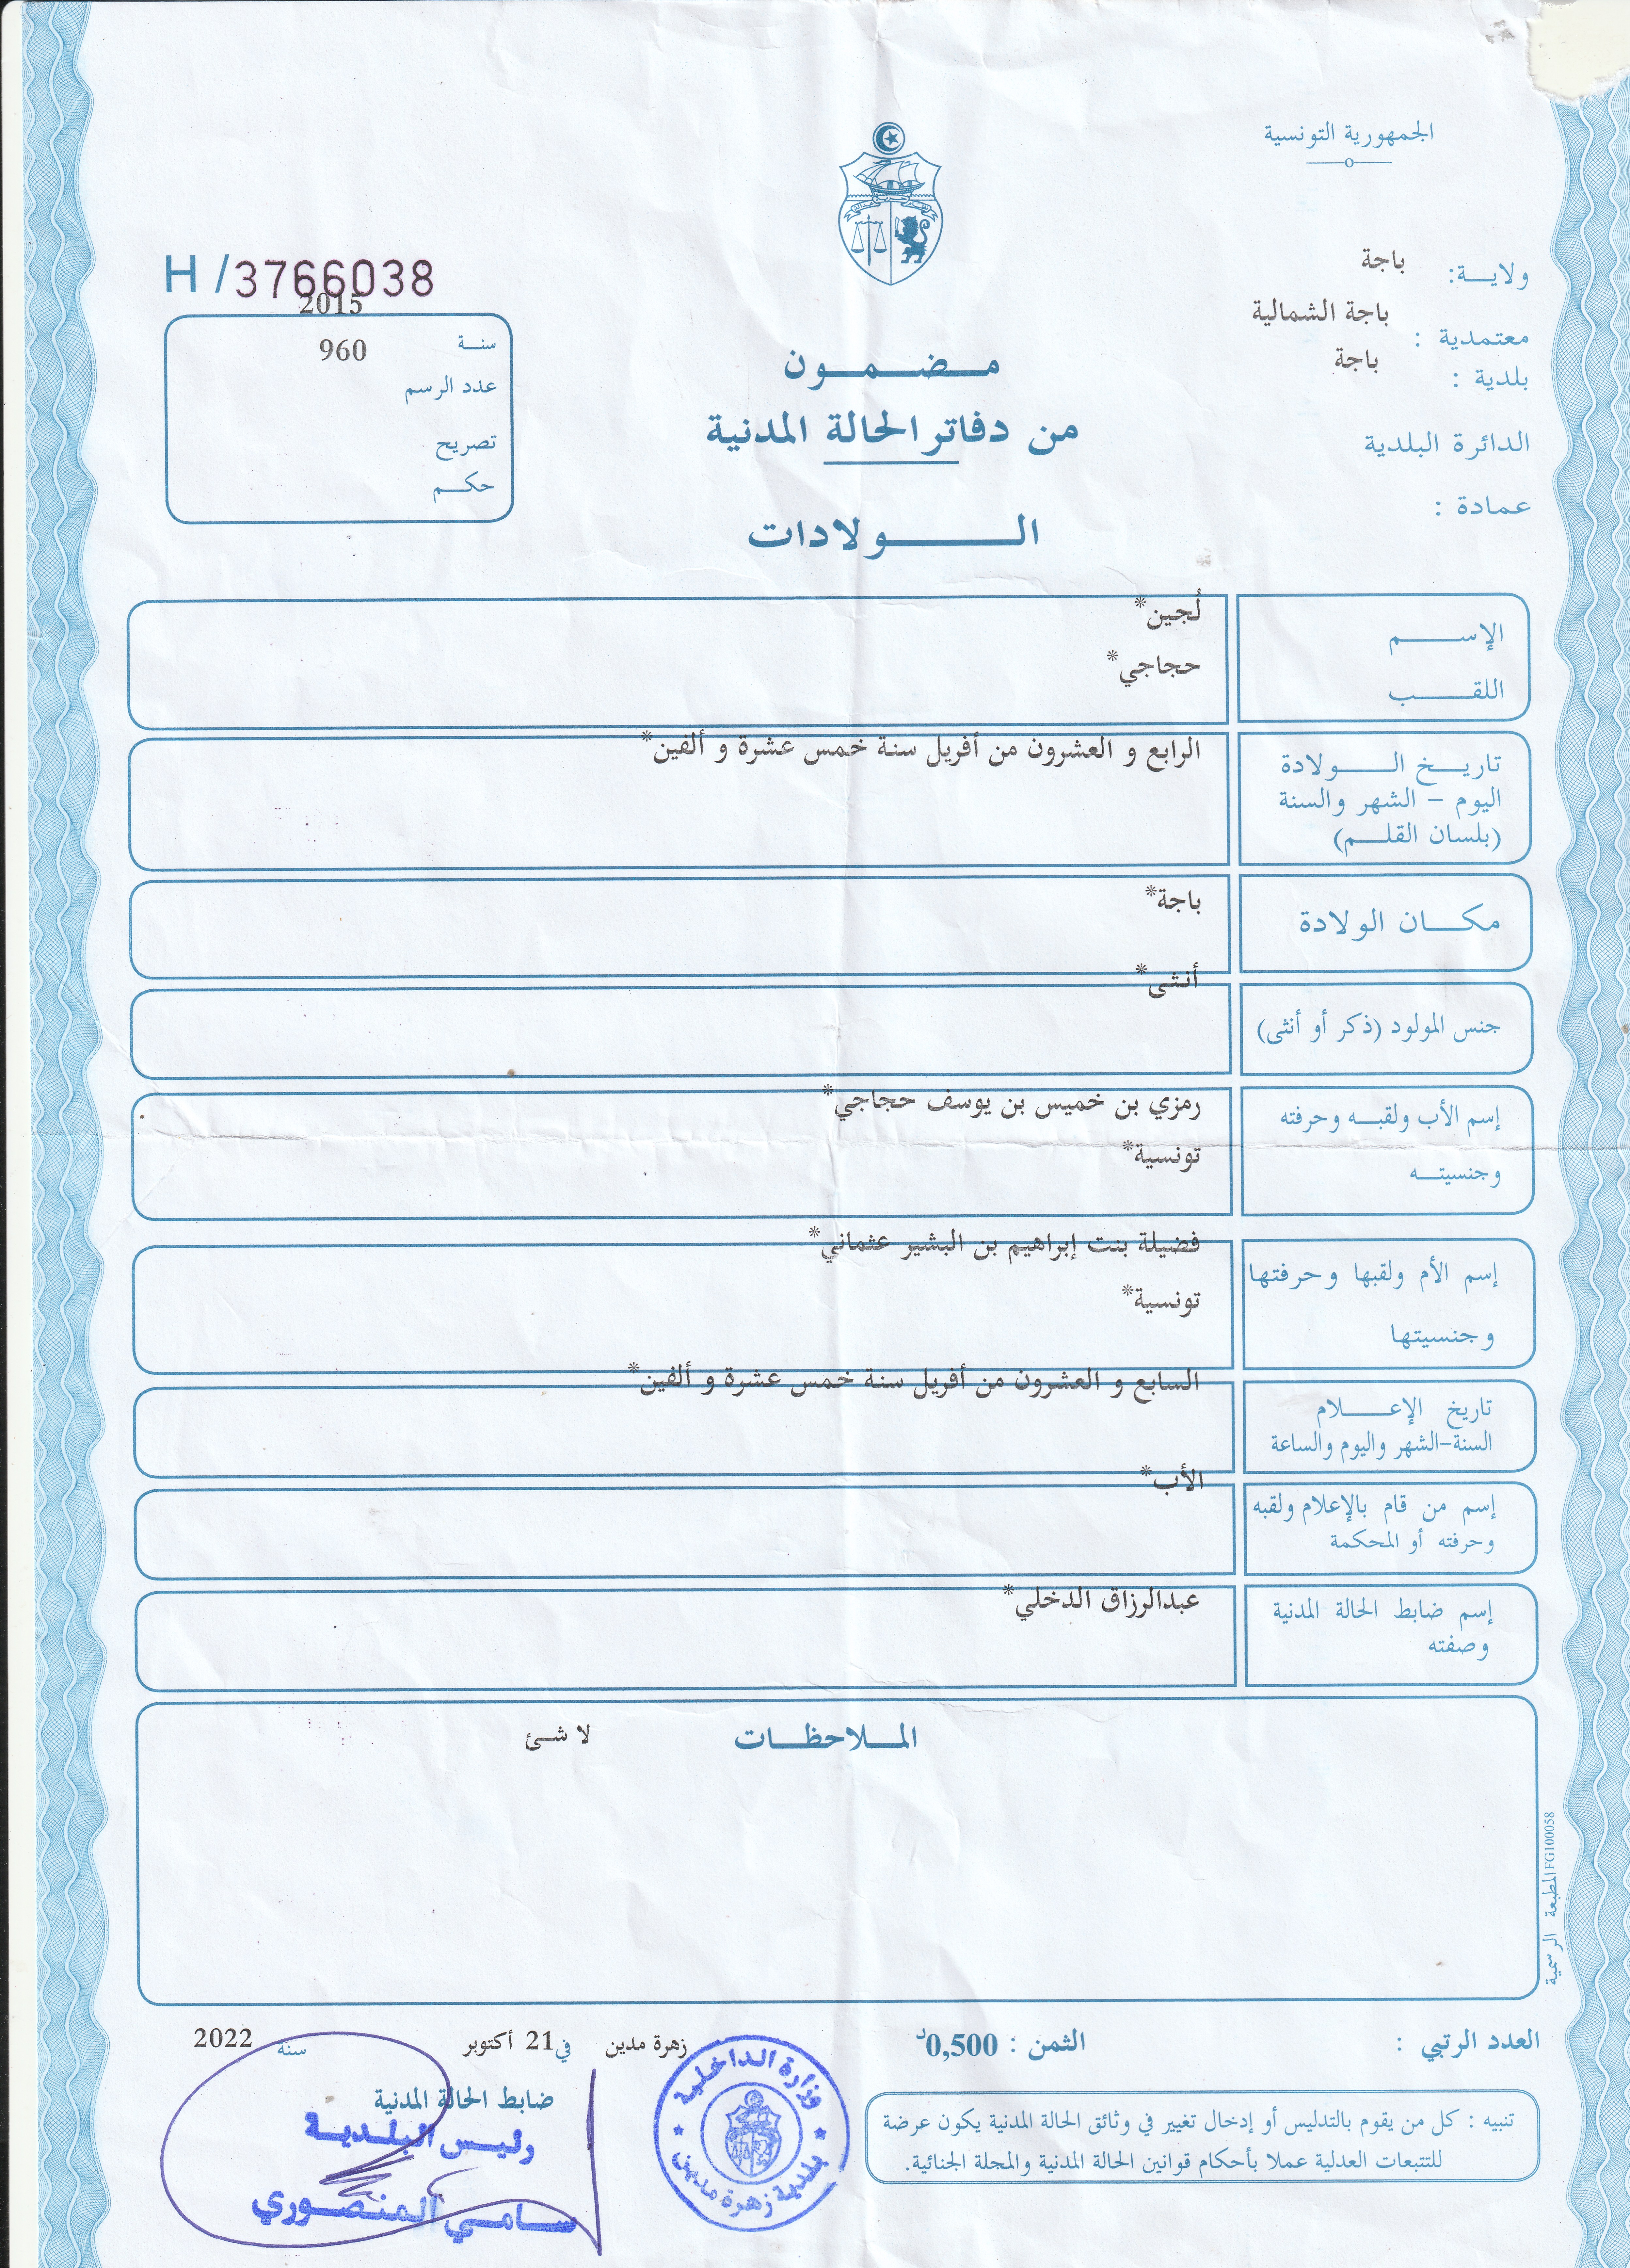 الجمهورية التونسية
ولاية: باجة
معتمدية : باجة الشمالية
بلدية : باجة
الدائرة البلدية
عمادة :
H /3766038
2015
سنة
960
عدد الرسم
تصريح
حكم
مضمون
من دفاتر الحالة المدنية
الولادات
الإسم
لُجين*
اللقب
حجاجي*
تاريخ الولادة
اليوم – الشهر والسنة
(بلسان القلم)
الرابع و العشرون من أفريل سنة خمس عشرة و ألفين*
مكان الولادة
باجة*
جنس المولود (ذكر أو أنثى)
أنثى*
إسم الأب ولقبه وحرفته
وجنسيته
رمزي بن خميس بن يوسف حجاجي*
تونسية*
إسم الأم ولقبها وحرفتها
وجنسيتها
فضيلة بنت إبراهيم بن البشير عثماني*
تونسية*
تاريخ الإعلام
السنة-الشهر واليوم والساعة
السابع و العشرون من أفريل سنة خمس عشرة و ألفين*
إسم من قام بالإعلام ولقبه
وحرفته أو المحكمة
الأب*
إسم ضابط الحالة المدنية
وصفته
عبدالرزاق الدخلي*
الملاحظات
لا شئ
المطبعة الرسمية FG100058
العدد الرتبي :
الثمن : 0,500د
زهرة مدين في 21 أكتوبر سنة 2022
ضابط الحالة المدنية
رئيس البلدية
سامي المنصوري
وزارة الداخلية
بلدية زهرة مدين
تنبيه : كل من يقوم بالتدليس أو إدخال تغيير في وثائق الحالة المدنية يكون عرضة
للتتبعات العدلية عملا بأحكام قوانين الحالة المدنية والمجلة الجنائية.